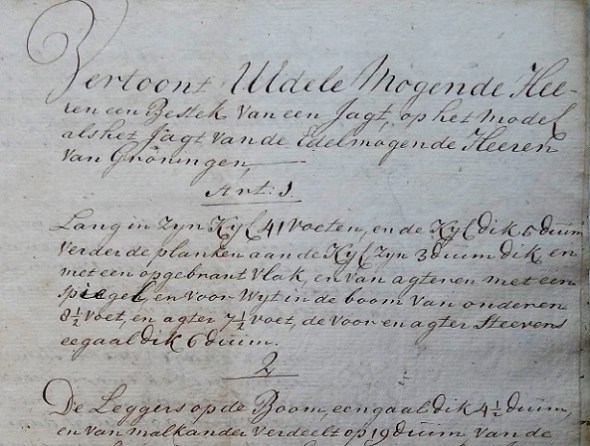 Vertoont UEdele Mogende Hee-
ren een Bestek van een Jagt, op het model
als het Jagt van de Edelmogende Heeren
van Gröningen,
Art: 1.
Lang in zyn Kyl 41 voeten, en de Kyl dik 5 duim
verder de planken aan de Kyl zyn 3 duim dik, en
met een opgebrant vlak, en van agteren met een
spiegel, en voor wyt in de boom van onderen
8½ voet, en agter 7½ voet, de voor en agter Steevens
eegaal dik 6 duim.
2
De Leggers op de Boom, eengaal dik 4½ duim,
en van malkander verdeelt op 19 duim, van de